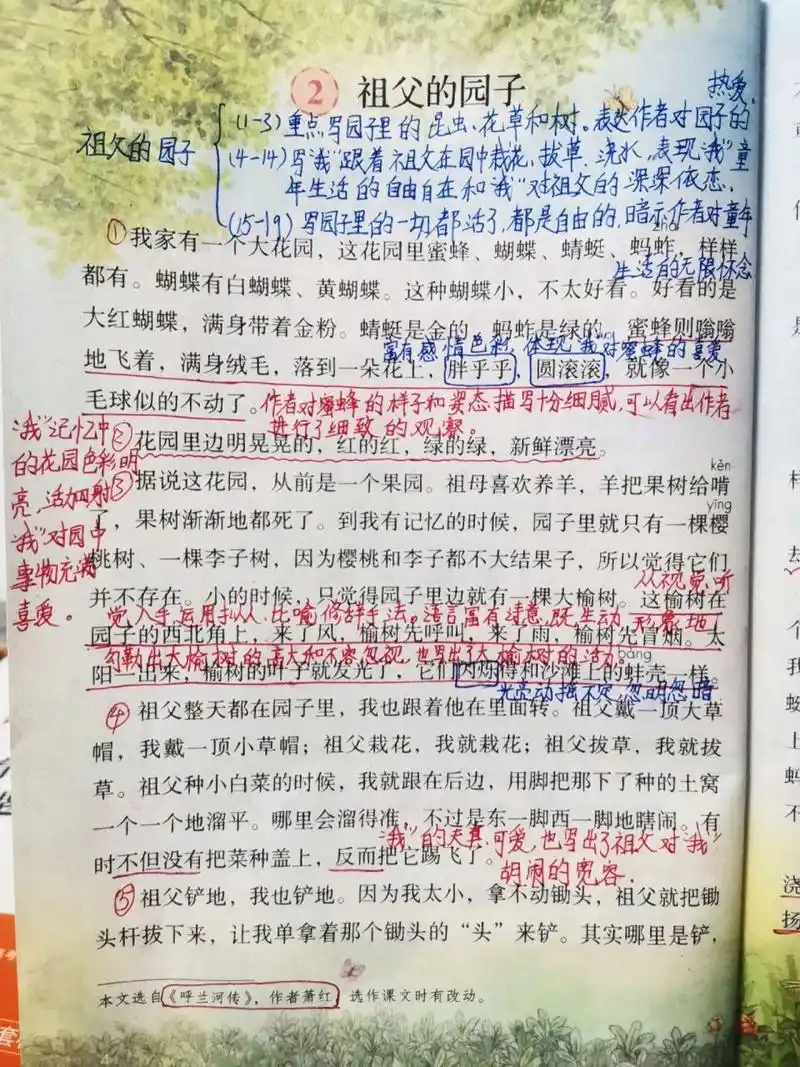 2 祖父的园子
热爱、
祖父的园子
(1-3)重点写园子里的昆虫、花草和树。表达作者对园子的
(4-14)写"我"跟着祖父在园中栽花、拔草、浇水,表现"我"童
年生活的自由自在和"我"对祖父的深深依恋.
(15-19)写园子里的一切都活了,都是自由的,暗示作者对童年
生活的无限怀念
zhà
①我家有一个大花园,这花园里蜜蜂、蝴蝶、蜻蜓、蚂蚱,样样
都有。蝴蝶有白蝴蝶、黄蝴蝶。这种蝴蝶小,不太好看。好看的是
大红蝴蝶,满身带着金粉。蜻蜓是金的,蚂蚱是绿的,蜜蜂则嗡嗡
富有感情色彩,体现"我"对蜜蜂的喜爱
地飞着,满身绒毛,落到一朵花上,胖乎乎,圆滚滚,就像一个小
毛球似的不动了。
作者对蜜蜂的样子和姿态描写十分细腻,可以看出作者
进行了细致的观察。
"我"记忆中
的花园色彩明
亮,活力四射
"我"对园中
事物充满
喜爱。
②花园里边明晃晃的,红的红,绿的绿,新鲜漂亮。
kěn
③据说这花园,从前是一个果园。祖母喜欢养羊,羊把果树给啃
yīng
了,果树渐渐地都死了。到我有记忆的时候,园子里就只有一棵樱
桃树、一棵李子树,因为樱桃和李子都不大结果子,所以觉得它们
并不存在。小的时候,只觉得园子里边就有一棵大榆树。这榆树在
从视觉、听
觉入手,运用拟人、比喻修辞手法。语言富有诗意,既生动形象地
园子的西北角上,来了风,榆树先呼叫,来了雨,榆树先冒烟。太
勾勒出大榆树的高大和不容忽视,也写出了大榆树的活力。
bàng
阳一出来,榆树的叶子就发光了,它们闪烁得和沙滩上的蚌壳一样。
光亮动摇不定,忽明忽暗
④祖父整天都在园子里,我也跟着他在里面转。祖父戴一顶大草
帽,我戴一顶小草帽;祖父栽花,我就栽花;祖父拔草,我就拔
草。祖父种小白菜的时候,我就跟在后边,用脚把那下了种的土窝
一个一个地溜平。哪里会溜得准,不过是东一脚西一脚地瞎闹。有
时不但没有把菜种盖上,反而把它踢飞了。
"我"的天真可爱,也写出了祖父对"我"
胡闹的宽容.
⑤祖父铲地,我也铲地。因为我太小,拿不动锄头,祖父就把锄
头杆拔下来,让我单拿着那个锄头的"头"来铲。其实哪里是铲,
本文选自《呼兰河传》,作者萧红,选作课文时有改动。
浇
扬